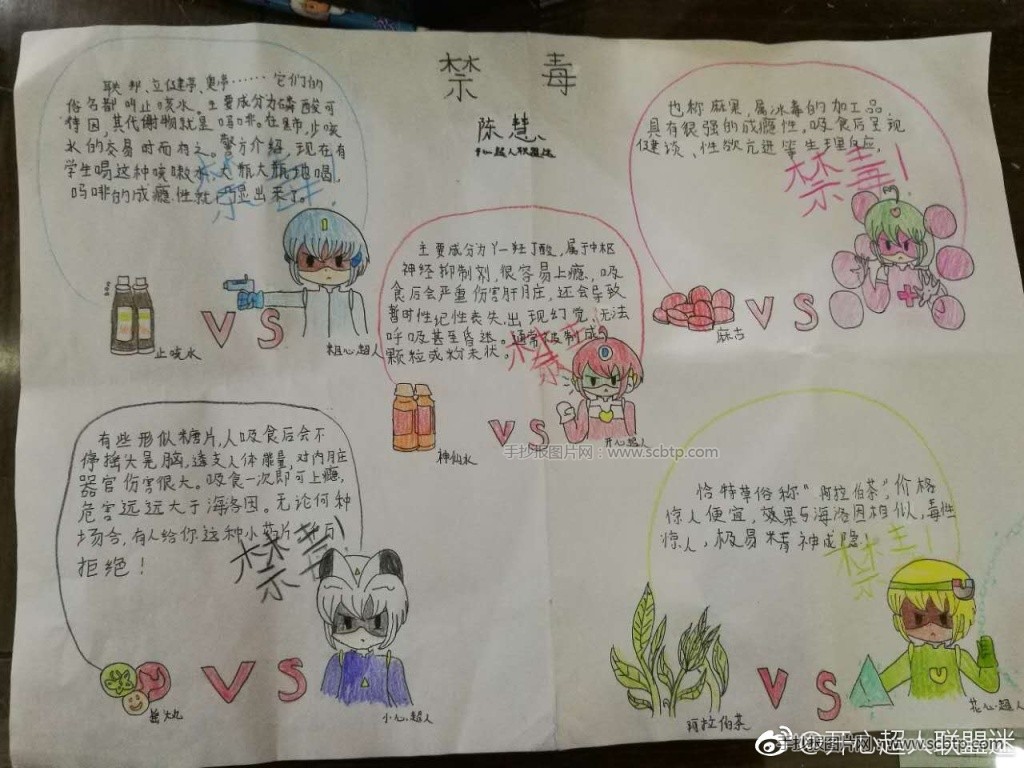 禁 毒
陈慧
开心超人联盟迷
联邦、立健亭、奥亭……它们的
俗名都叫止咳水。主要成分为磷酸可
待因,其代谢物就是吗啡。在黑市,止咳
水的交易时而有之。警方介绍,现在有
学生喝这种咳嗽水大瓶大瓶地喝,
吗啡的成瘾性就已显出来了。
禁毒!
止咳水
VS
粗心超人
也称麻果,属冰毒的加工品,
具有很强的成瘾性,吸食后呈现
健谈、性欲亢进等生理反应。
禁毒!
麻古
VS
主要成分为丫一羟丁酸,属于中枢
神经抑制剂,很容易上瘾、吸
食后会严重伤害肝脏,还会导致
暂时性纪性丧失,出现幻觉、无法
呼吸甚至昏迷。通常被制成
颗粒或粉末状。
禁毒
神仙水
VS
开心超人
手抄报图片网:www.scbtp.com
有些形似糖片,人吸食后会不
停摇头晃脑,透支人体能量,对内脏
器官伤害很大。吸食一次即可上瘾,
危害远远大于海洛因。无论何种
场合,有人给你这种小药片,千万
拒绝!
禁毒!
摇头丸
VS
小心超人
恰特草俗称“阿拉伯茶”,价格
惊人便宜,效果与海洛因相似,毒性
惊人,极易精神成隐!
禁毒!
阿拉伯茶
VS
花心超人
@开心超人联盟迷
手抄报图片网:www.scbtp.com